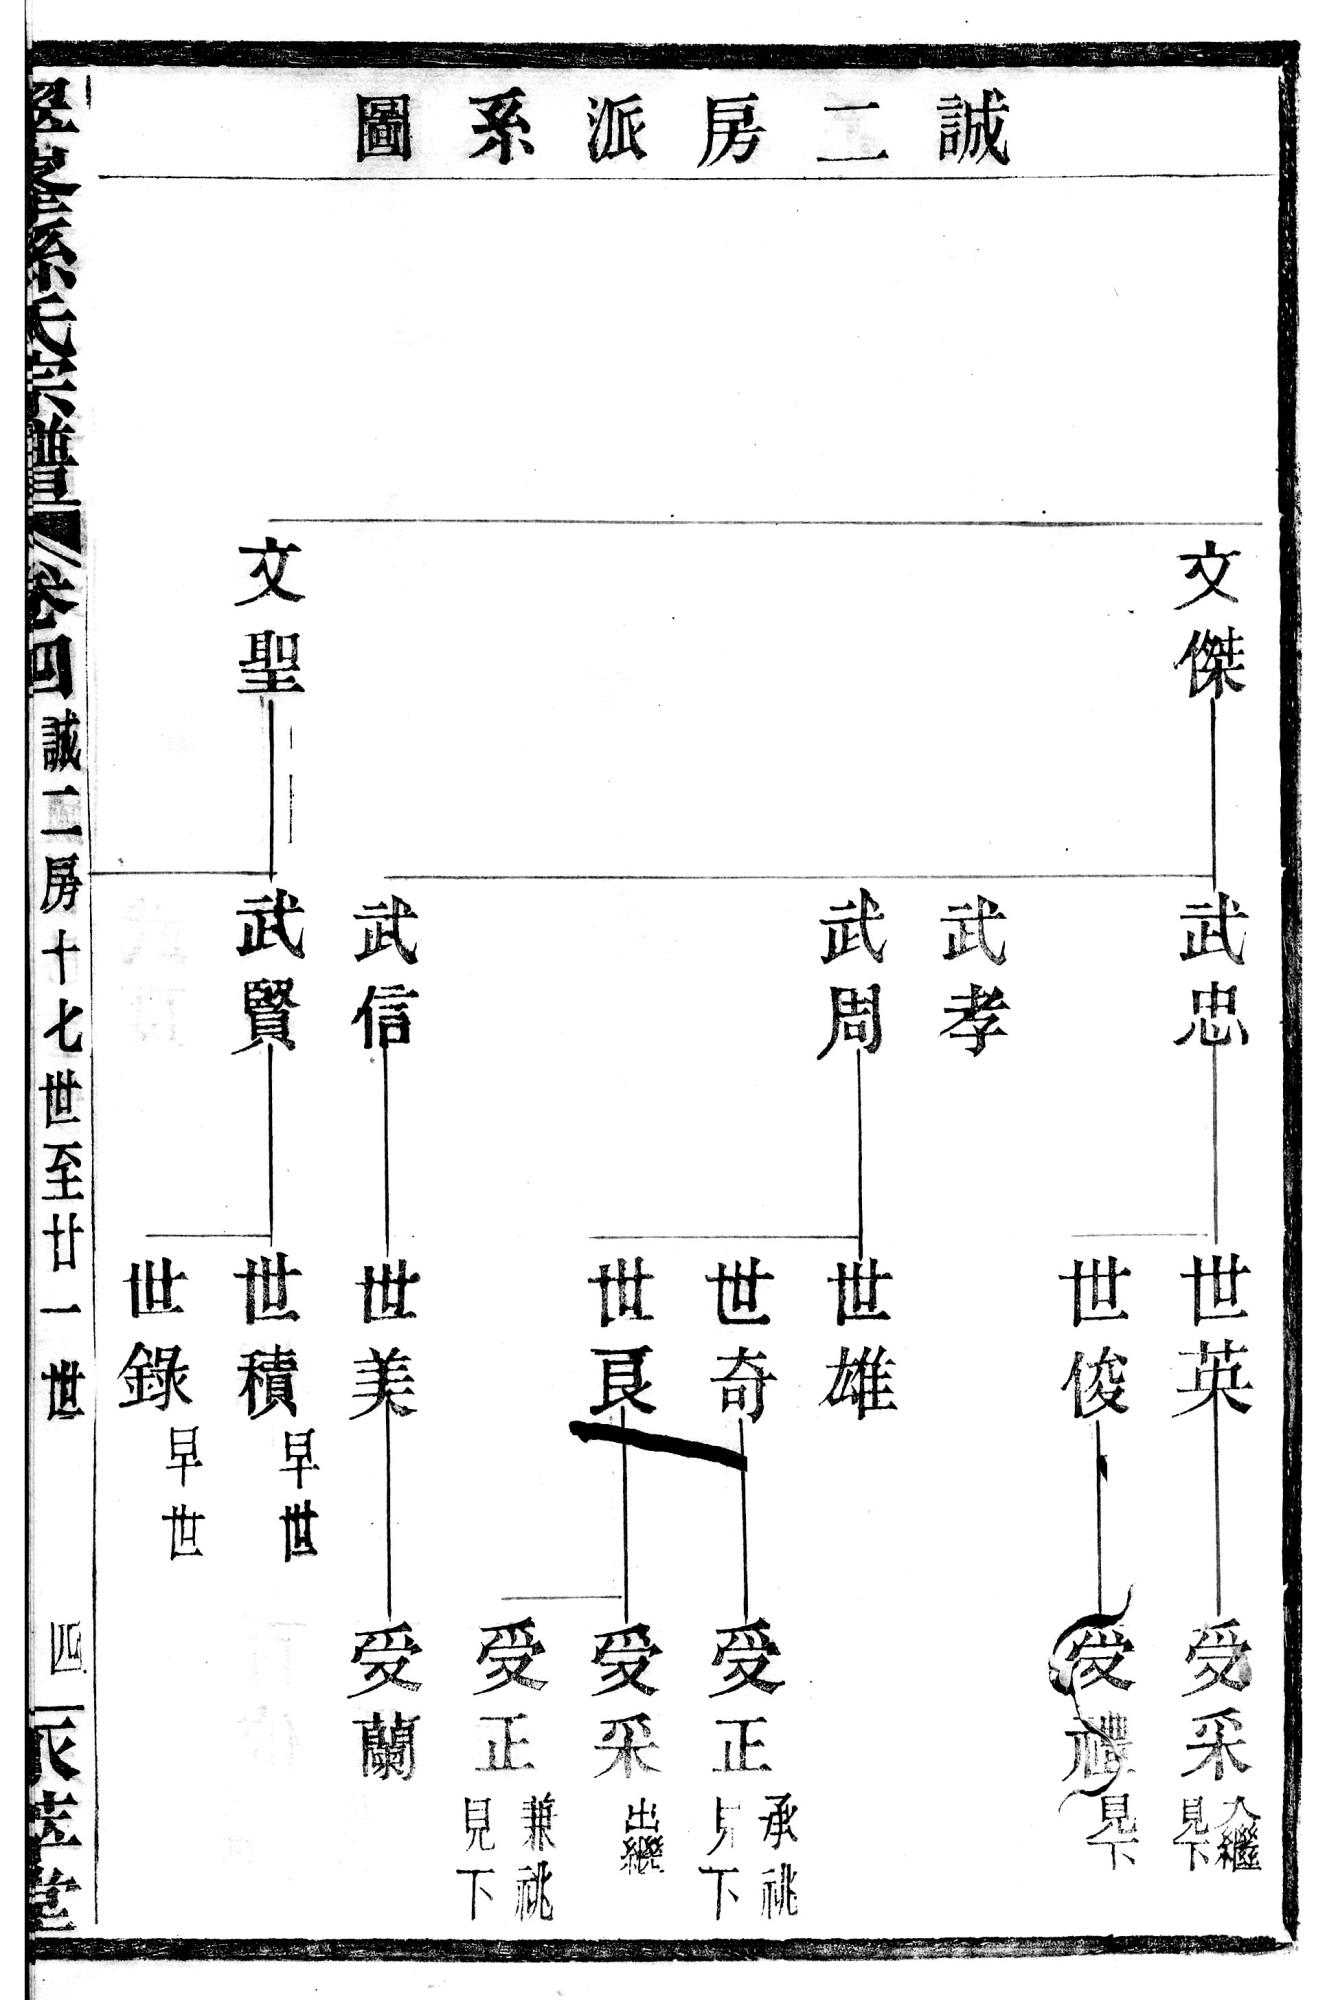 誠二房派系圖
文傑
文聖
武忠
武孝
武周
武信
武賢
世英
世俊
世雄
世奇
世良
世美
世積 早世
世錄 早世
受采 入繼 見下
受禮 見下
受正 承祧 見下
受采 出繼
受正 兼祧 見下
受蘭
孫氏宗譜 卷四 誠二房十七世至廿一世 四 堂